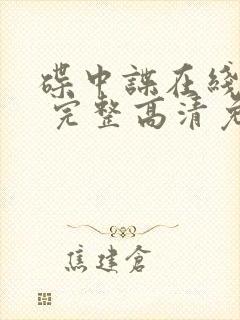 碟中諜在綫
完整高清免
焦建倉